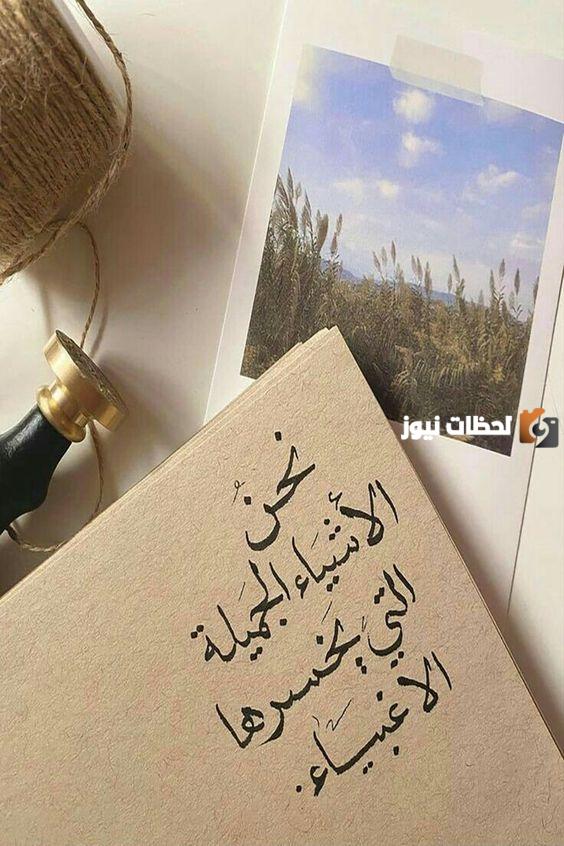 لحظات نيوز
نحنُ
الأشياء الجميلة
التي يخسرها
الاغبياء.